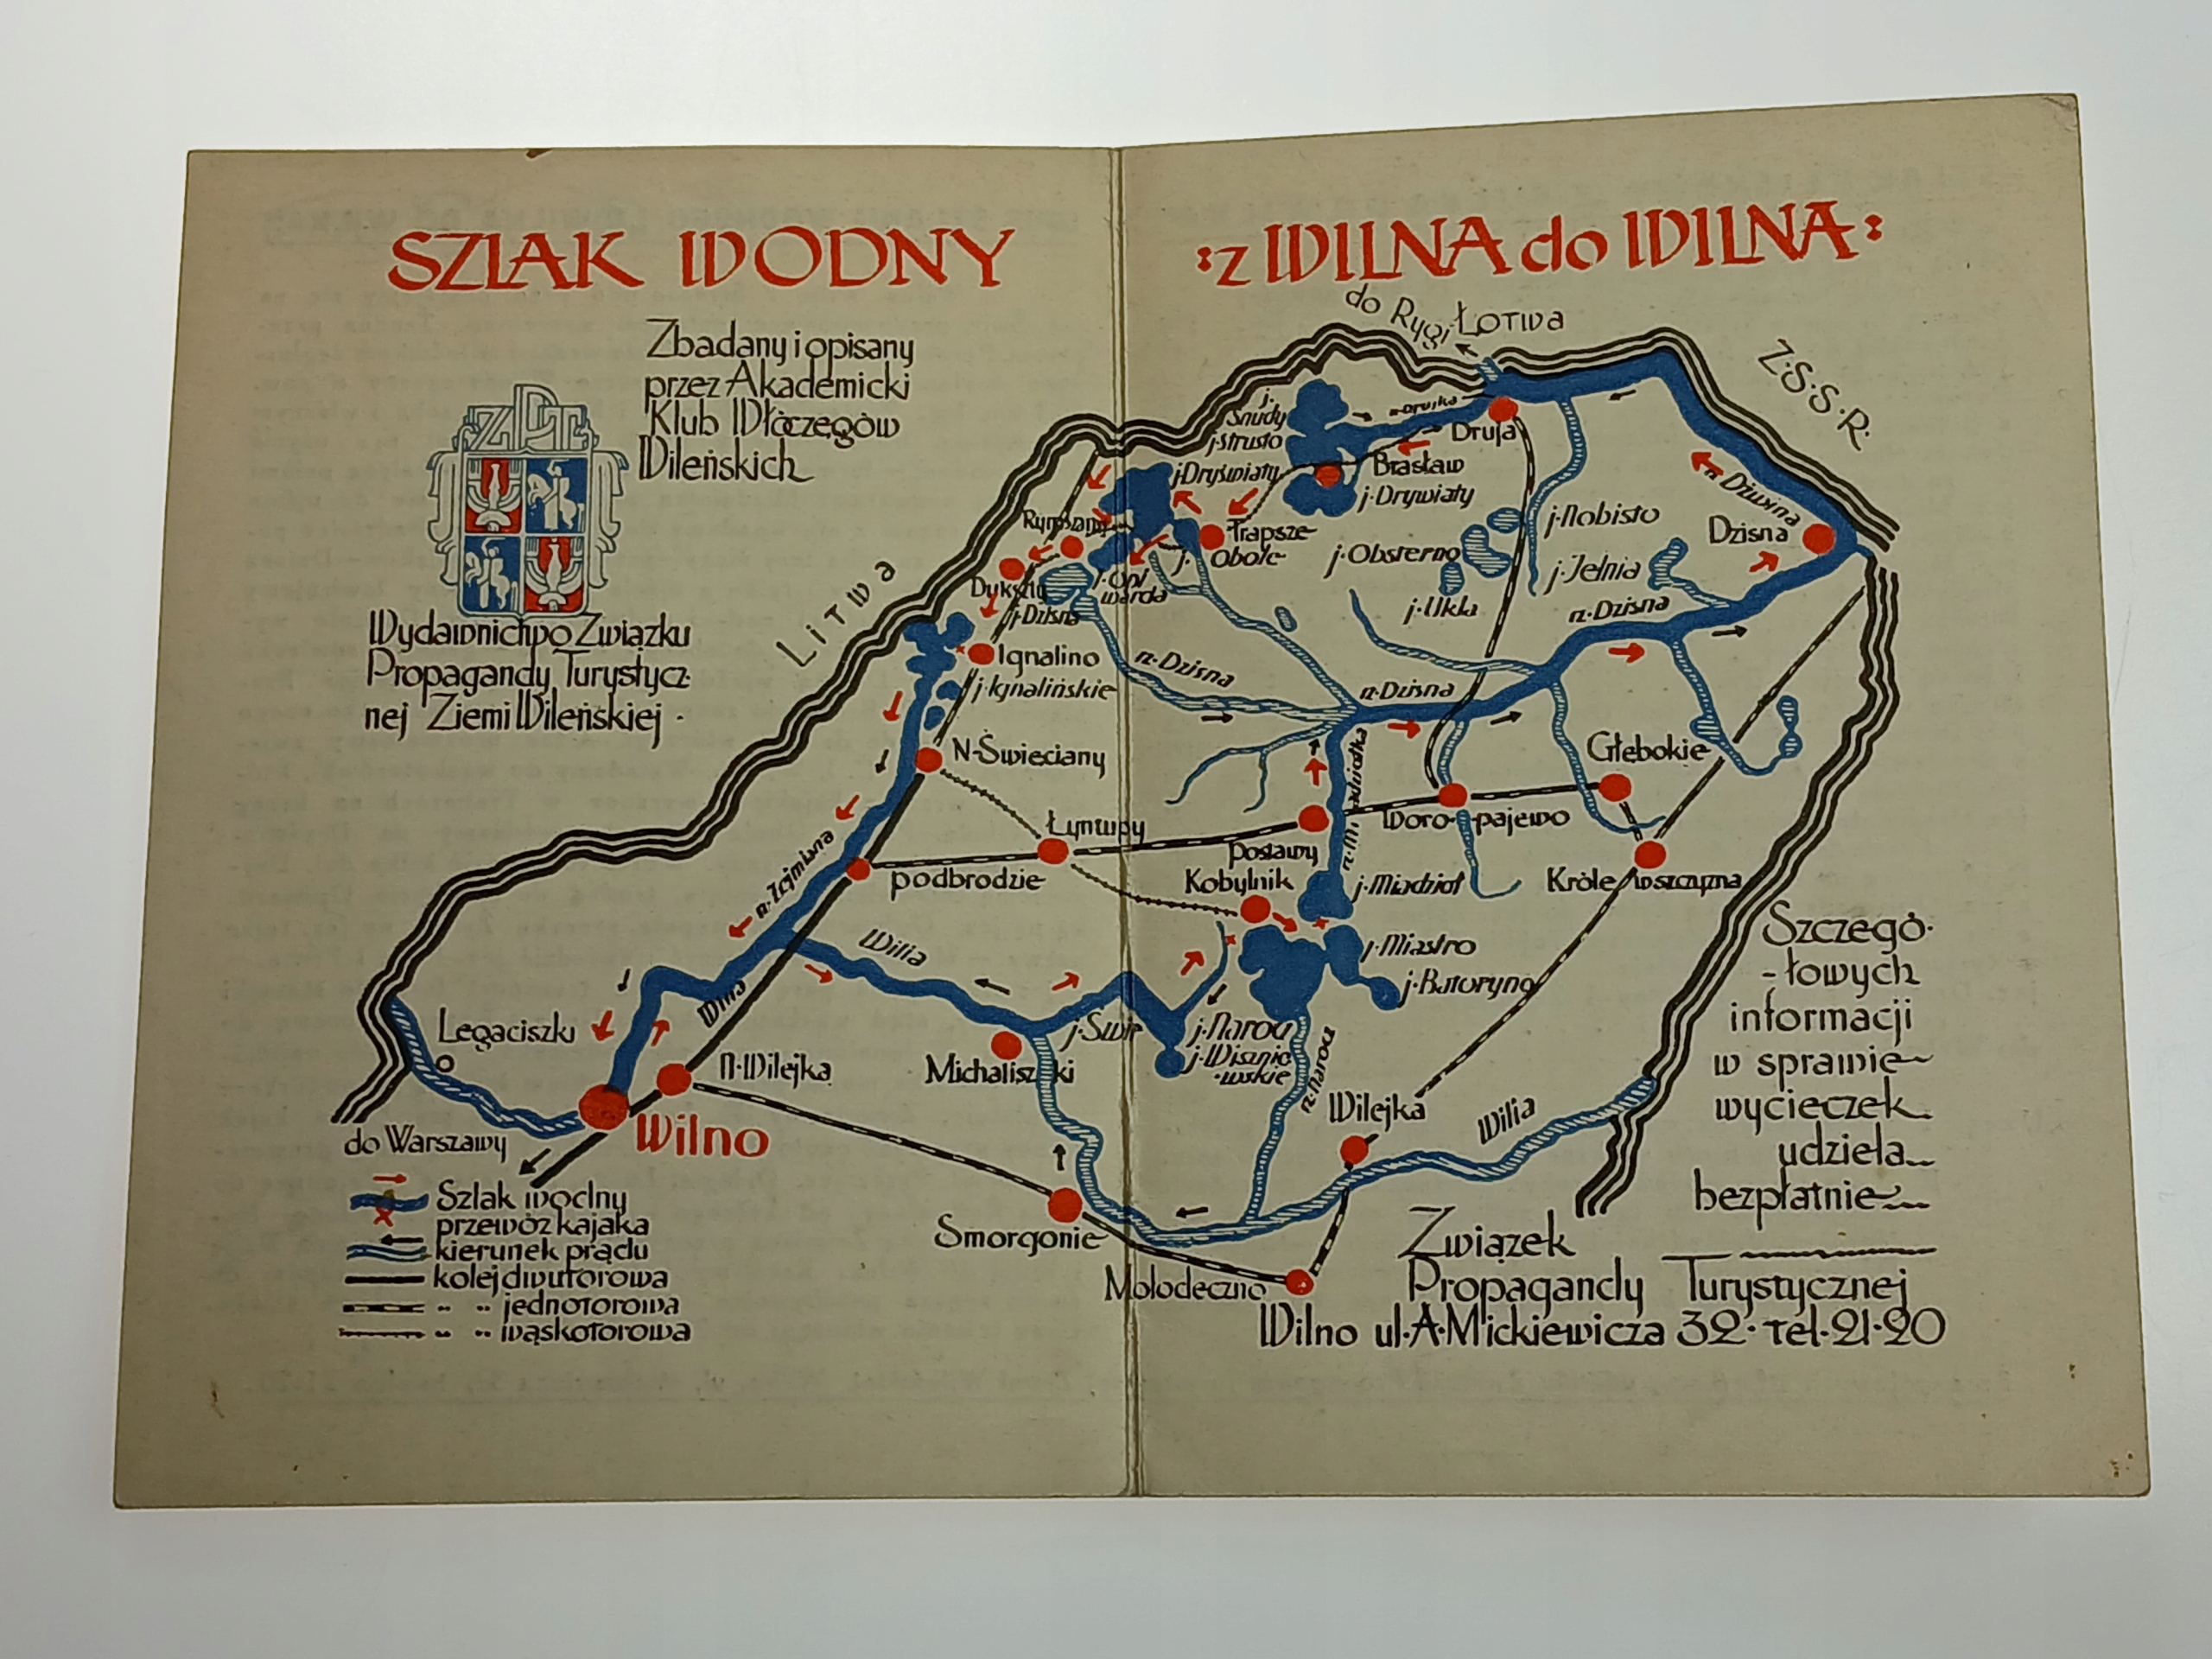 SZLAK WODNY
:z WILNA do WILNA:
Zbadany i opisany
przez Akademicki
Klub Włóczęgów
Wileńskich
ZPT
Wydawnictwo Związku
Propagandy Turystycz-
nej Ziemi Wileńskiej.
do Rygi
Łotwa
Z.S.S.R.
Litwa
j. Snudy
j. Strusto
Drujka
Druja
j. Dryświaty
Brasław
j. Drywiaty
Rymszany
Trapsze
j. Obole
j. Opiwarda
Dukszty
j. Dzisna
j. Obsterno
j. Nobisto
j. Jelnia
j. Ukla
r. Dźwina
Dzisna
r. Dzisna
Ignalino
j. Ignalińskie
r. Dzisna
r. Dzisna
N-Święciany
Głębokie
r. Miadziołka
Łyntupy
Woro-pajewo
r. Żejmiana
podbrodzie
Postawy
Kobylnik
j. Miadzioł
Króle wszczyzna
Wilia
j. Miastro
j. Batoryno
Wilia
Legaciszki
j. Świr
j. Narocz
j. Wisznie
wskie
r. Narocz
N-Wilejka
Michaliszki
Wilno
Wilejka
Wilia
do Warszawy
Smorgonie
Mołodeczno
Szlak wodny
przewóz kajaka
kierunek prądu
kolej dwutorowa
" " jednotorowa
" " wąskotorowa
Szczegó-
-łowych
informacji
w sprawie
wycieczek
udziela
bezpłatnie
Związek
Propagandy Turystycznej
Wilno ul. A. Mickiewicza 32. tel. 21-20